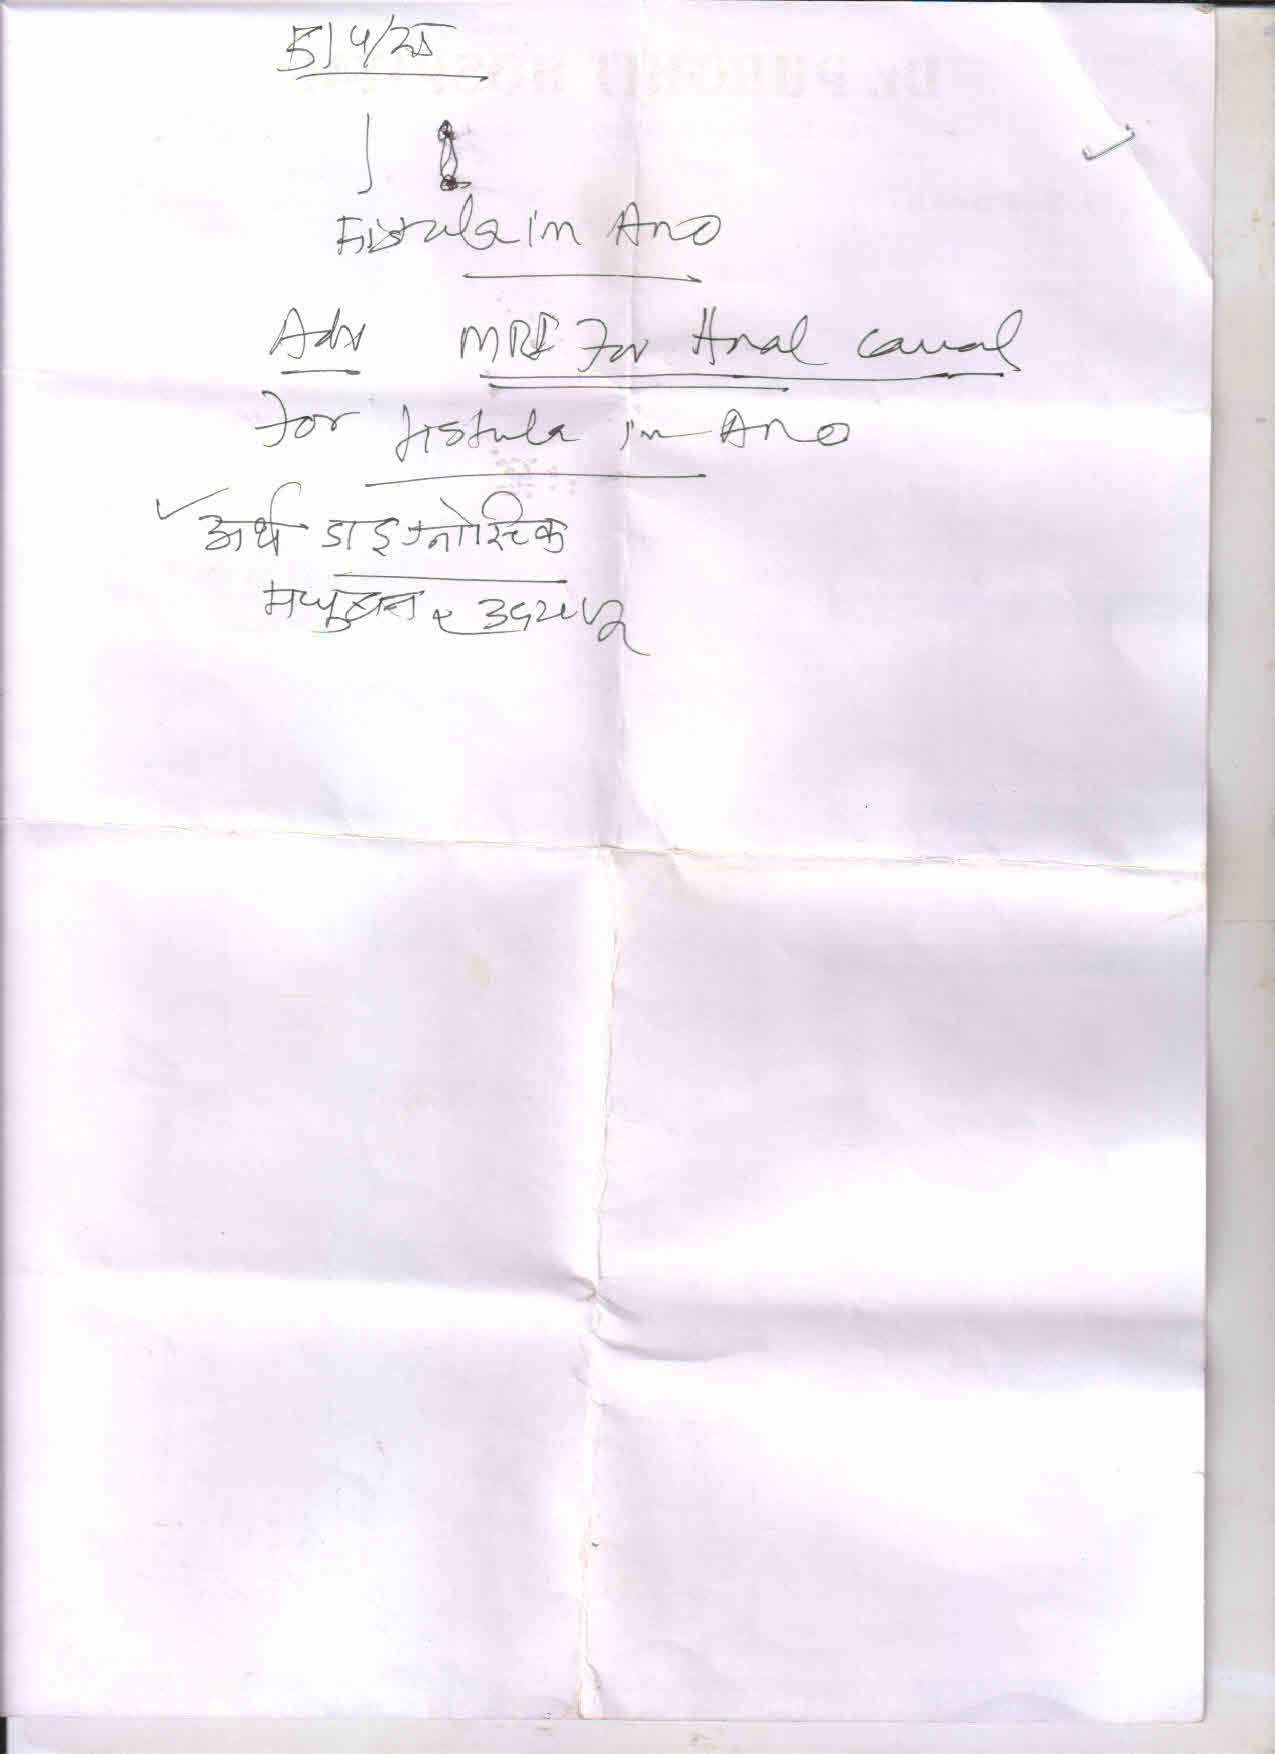 5/4/25
Fistula in Ano
Adv MRI For Anal canal
For fistula in Ano
✓ अर्थ डाइग्नोस्टिक
मधुबन उदयपुर